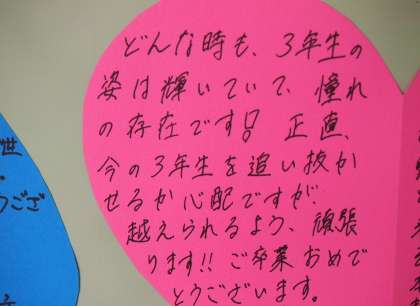 どんな時も、3年生の
姿は輝いていて、憧れ
の存在です! 正直、
今の3年生を追い抜か
せるか心配ですが、
越えられるよう、頑張
ります!! ご卒業おめで
とうございます。
世
うござ